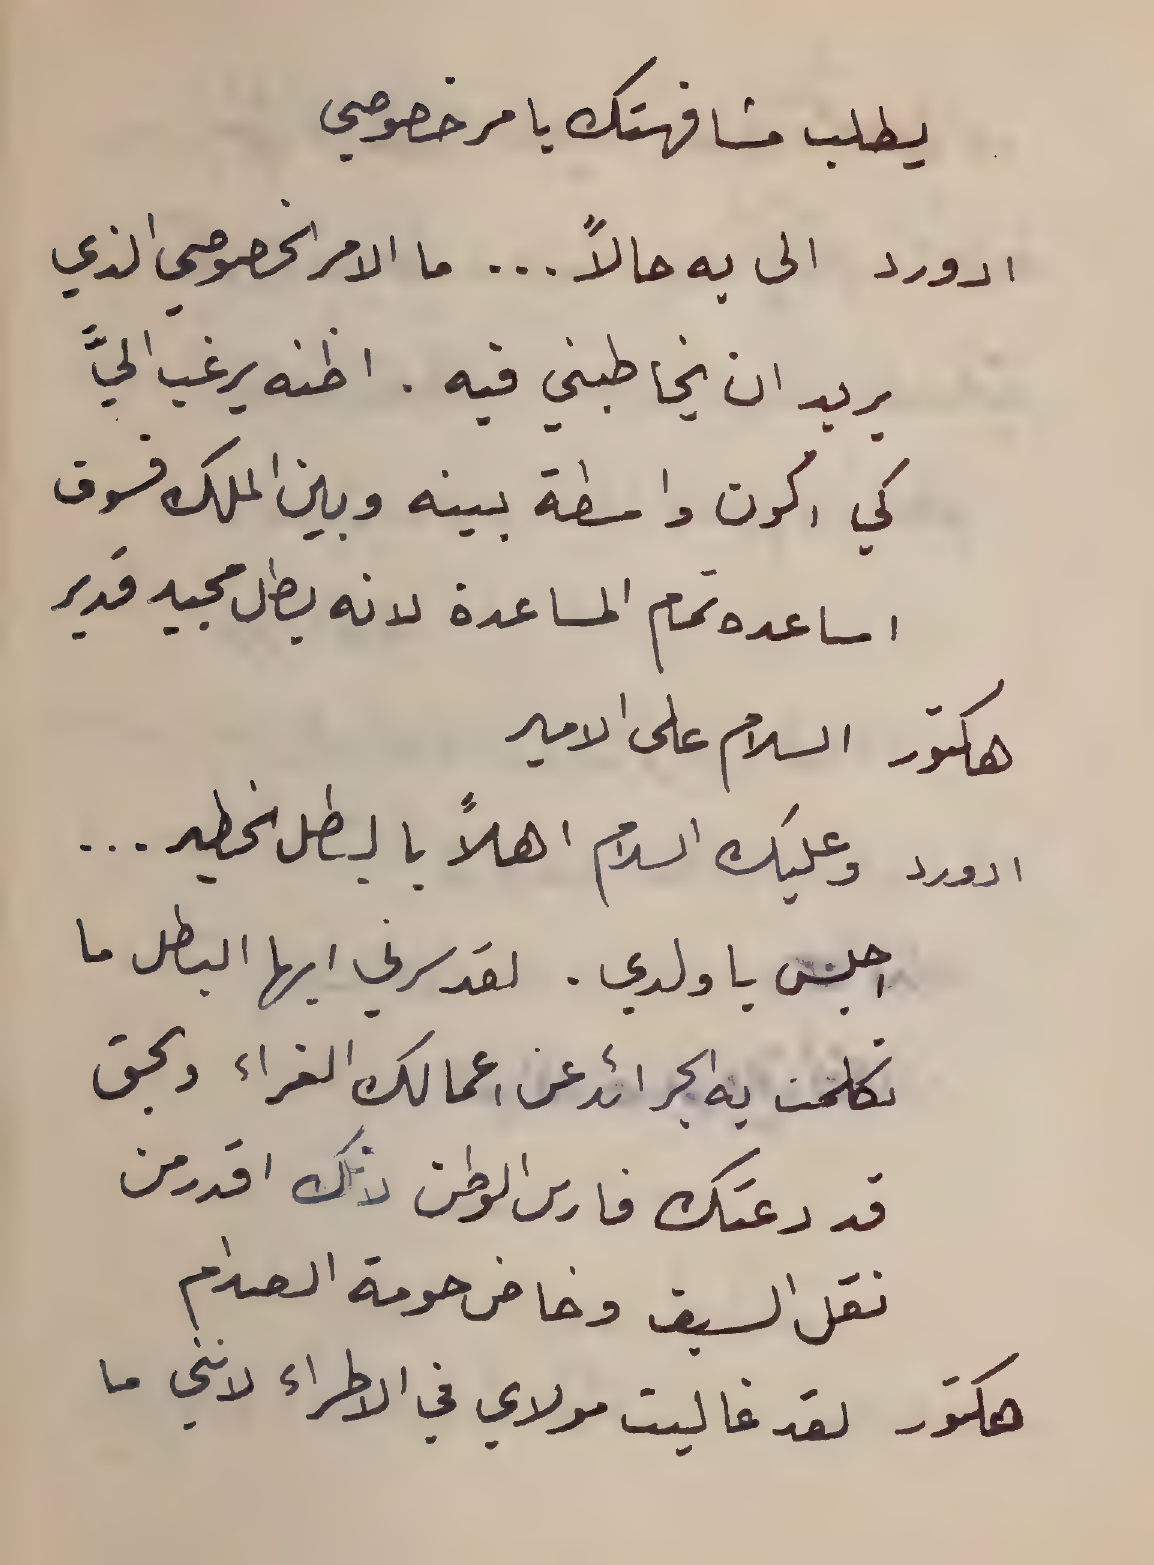 يطلب مشافهتك بامر خصوصي
ادورد الى به حالاً ... ما الامر الخصوصي الذي
يريد ان يخاطبني فيه . اظنه يرغب اليَّ
كي اكون واسطة بينه وبين الملك فسوف
اساعده تمام المساعدة لانه بطل مجيد قدير
هكتور السلام على الامير
ادورد وعليك السلام اهلاً بالبطل الخطير ...
اجلس يا ولدي . لقد سرني ايها البطل ما
تكلمت به الجرائد عن اعمالك الغراء وبحق
قد دعتك فارس الوطن لانك اقدر من
نقل السيف وخاض حومة الصدام
هكتور لقد غاليت مولاي في الاطراء لانني ما